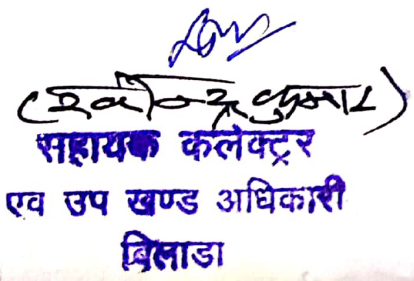 (रवीन्द्र कुमार)
सहायक कलेक्ट्रर
एव उप खण्ड अधिकारी
बिलाडा